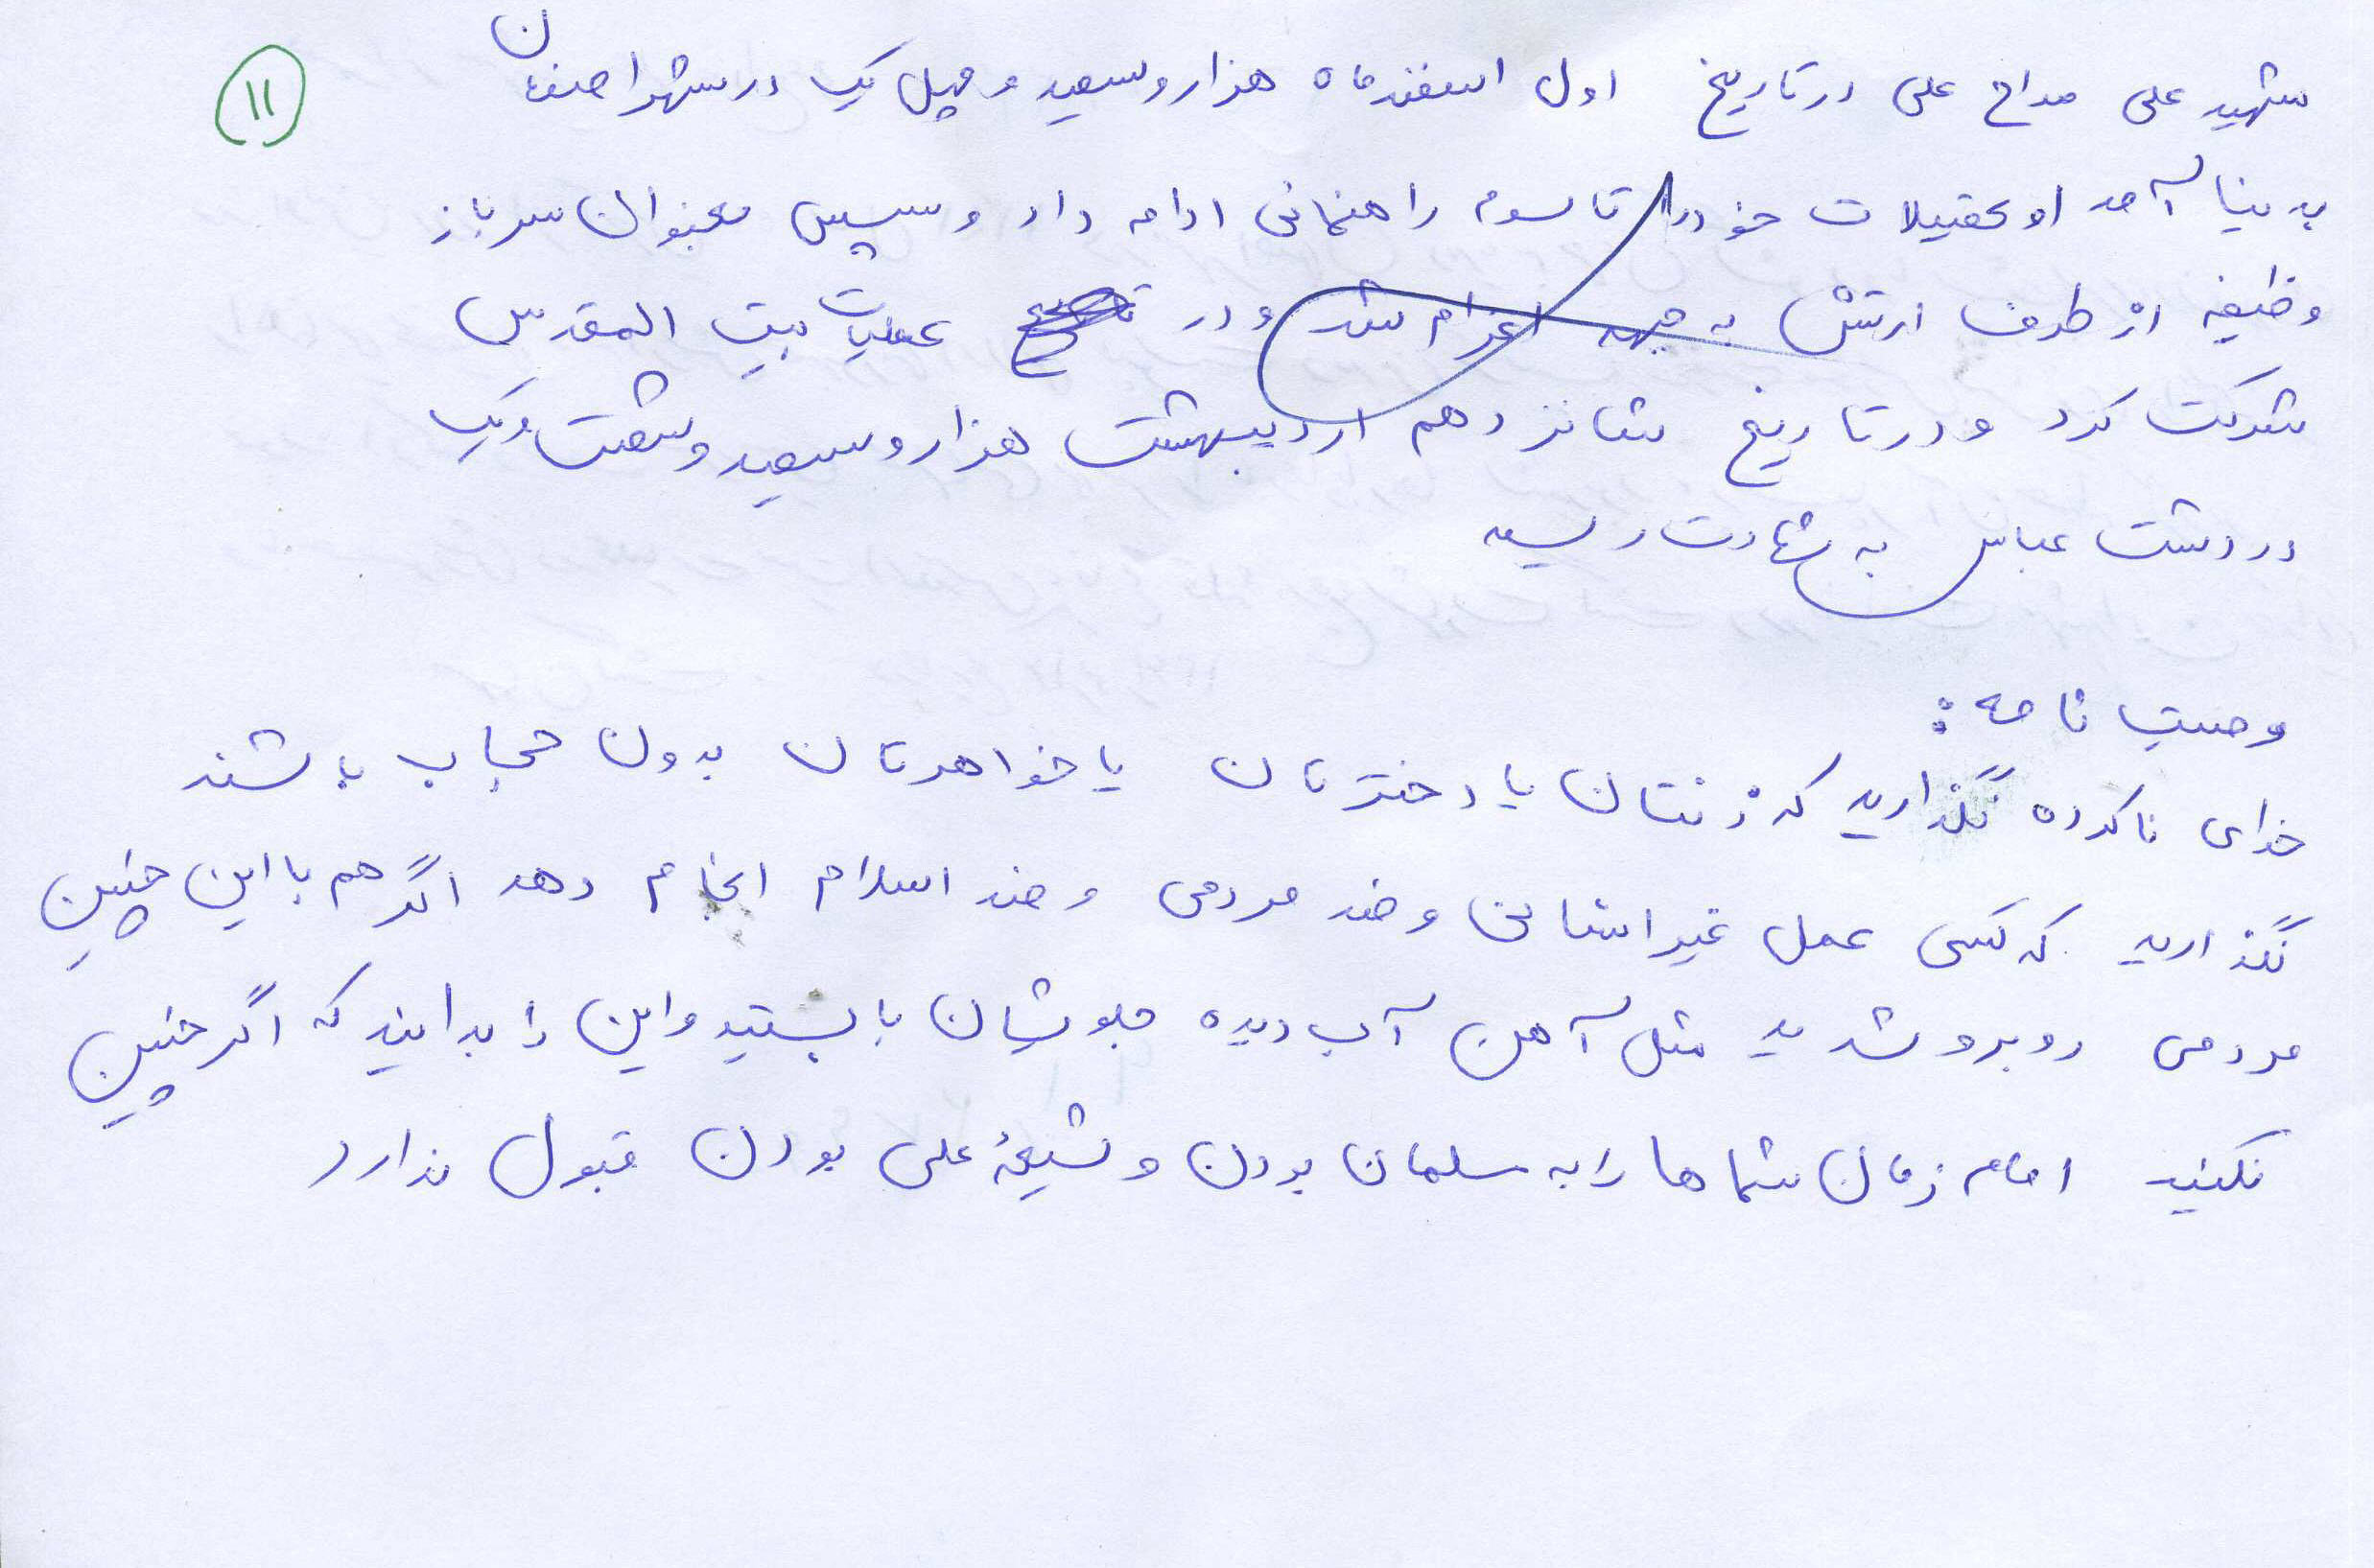 ۱۱
شهید علی مداح علی در تاریخ اول اسفند ماه هزار و سیصد و چهل یک در شهر اصفهان
بدنیا آمد او تحصیلات خود را تا سوم راهنمائی ادامه داد و سپس بعنوان سرباز
وظیفه از طرف ارتش به جبهه اعزام شد و در عملیات بیت المقدس
شرکت کرد و در تاریخ شانزدهم اردیبهشت هزار و سیصد و شصت و یک
در دشت عباس به شهادت رسید
وصیت نامه:
خدای ناکرده نگذارید که زنتان یا دخترتان یا خواهرتان بدون حجاب باشند
نگذارید که کسی عمل غیر انسانی و ضد مردمی و ضد اسلام انجام دهد اگر هم با این چنین
مردمی روبرو شدید مثل آهن آب دیده جلوشان بایستید و این را بدانید که اگر چنین
نکنید امام زمان شما ها را به مسلمان بودن و شیعهٔ علی بودن قبول ندارد